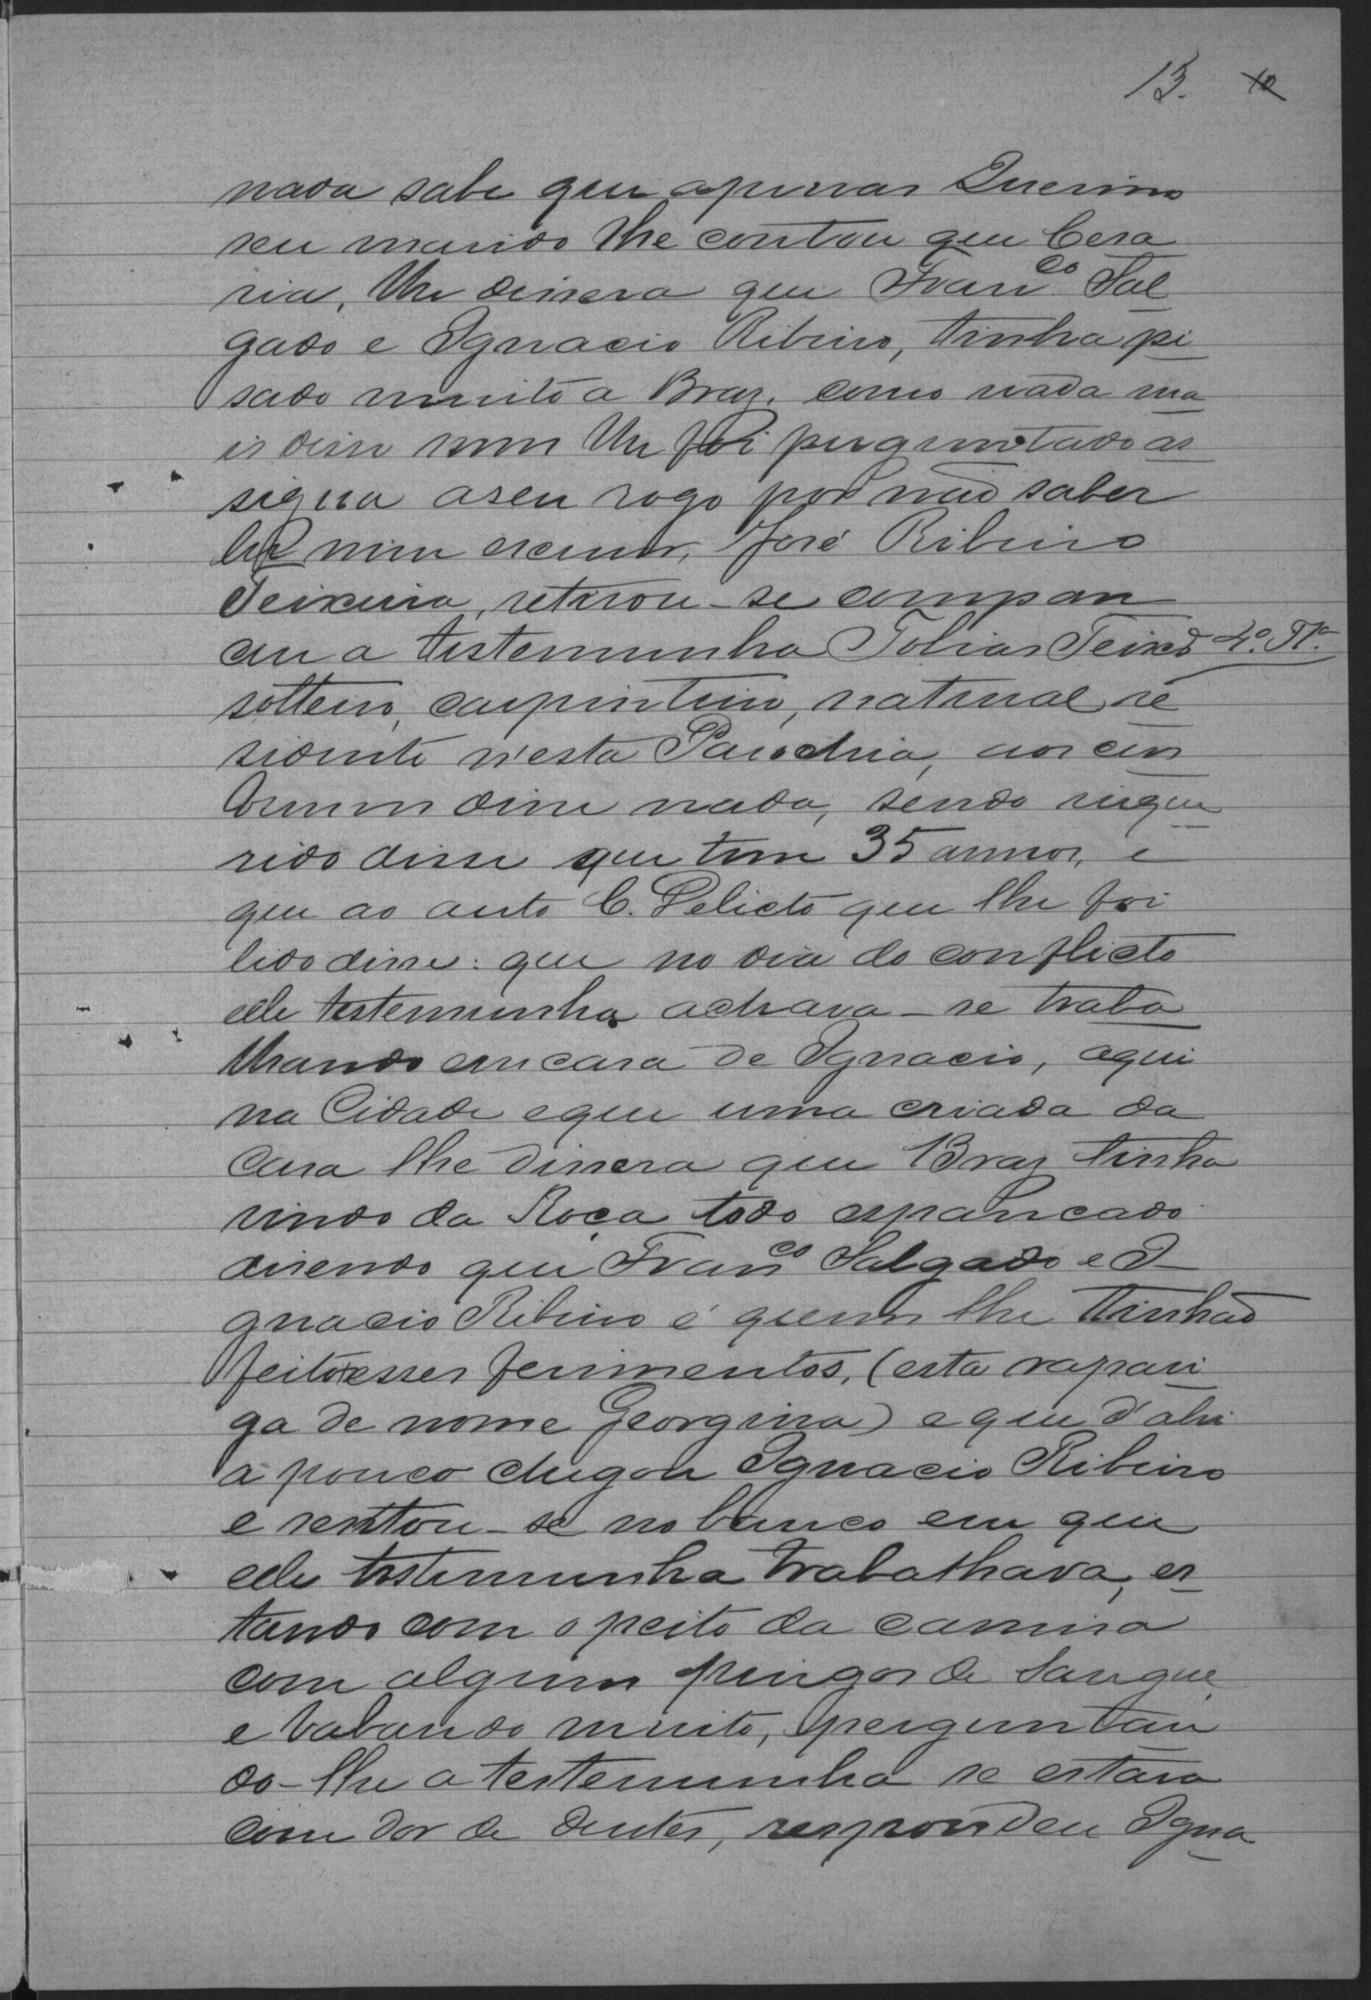 13. 10
nada sabe que apenas Querino
seu marido lhe contou que Cesa
ria, lhe dissera que Franco. Sal
gado e Ignacio Ribeiro, tinha pi
sado muito a Braz, como nada ma
is disse nem lhe foi perguntado as
signa a seu rogo por não saber
ler nem escrever, José Ribeiro
Teixeira, retirou-se compare
ceu a testemunha Tobias Teixra 4ª. Tª.
solteiro, carpinteiro, natural re
sidente n'esta Parochia, aos cos
tumes disse nada, sendo inque
rido disse que tem 35 annos, e
que ao auto C. Delicto que lhe foi
lido disse: que no dia do conflicto
elle testemunha achava-se traba
lhando em casa de Ignacio, aqui
na Cidade e que uma criada da
casa lhe dissera que Braz tinha
vindo da Roça todo espancado
disendo que Franco Salgado e I-
gnacio Ribeiro é quem lhe tinhão
feito esses ferimentos, (esta rapari
ga de nome Georgina) e que d'ahi
a pouco chegou Ignacio Ribeiro
e sentou-se no banco em que
elle testemunha trabalhava, es
tando com o peito da camisa
com alguns pingos de sangue,
e babando muito, perguntan
do-lhe a testemunha se estava
com dor de dentes, respondeu Igna